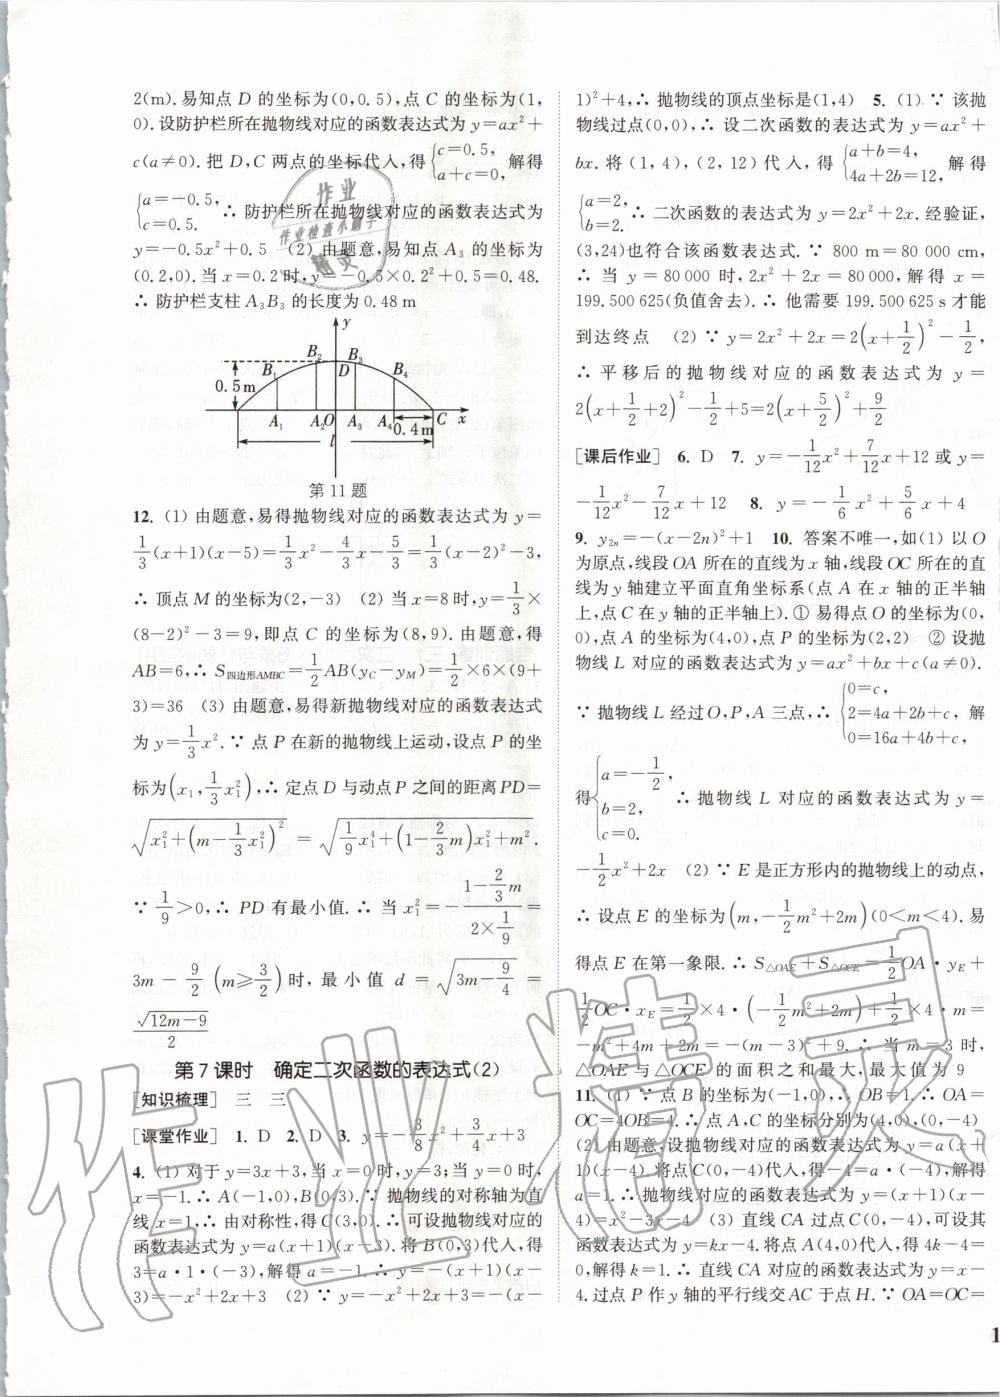 2(m). 易知点 D 的坐标为(0,0.5),点 C 的坐标为(1,
0). 设防护栏所在抛物线对应的函数表达式为 y=ax²+
c(a≠0). 把 D,C 两点的坐标代入,得{c=0.5, a+c=0, 解得
{a=-0.5, c=0.5. ∴ 防护栏所在抛物线对应的函数表达式为
y=-0.5x²+0.5 (2) 由题意,易知点 A₃ 的坐标为
(0.2,0). 当 x=0.2 时,y=-0.5×0.2²+0.5=0.48.
∴ 防护栏支柱 A₃B₃ 的长度为 0.48 m
y
B₁ B₂ D B₃ B₄
0.5 m
A₁ A₂ O A₃ A₄ C x
0.4 m
l
第 11 题
12. (1) 由题意,易得抛物线对应的函数表达式为 y=
1/3(x+1)(x-5)=1/3x²-4/3x-5/3=1/3(x-2)²-3,
∴ 顶点 M 的坐标为(2,-3) (2) 当 x=8 时,y=1/3×
(8-2)²-3=9,即点 C 的坐标为(8,9). 由题意,得
AB=6. ∴ S四边形AMBC=1/2AB(yC-yM)=1/2×6×(9+
3)=36 (3) 由题意,易得新抛物线对应的函数表达式
为 y=1/3x². ∵ 点 P 在新的抛物线上运动,设点 P 的坐
标为(x₁,1/3x₁²). ∴ 定点 D 与动点 P 之间的距离 PD=
√(x₁²+(m-1/3x₁²)²) = √(1/9x₁⁴+(1-2/3m)x₁²+m²).
∵ 1/9>0,∴ PD 有最小值. ∴ 当 x₁²=-(1-2/3m)/(2×1/9)=
3m-9/2 (m≥3/2) 时,最小值 d=√(3m-9/4)=
√(12m-9)/2
第 7 课时 确定二次函数的表达式(2)
[知识梳理] 三 三
[课堂作业] 1. D 2. D 3. y=-3/8x²+3/4x+3
4. (1) 对于 y=3x+3,当 x=0 时,y=3;当 y=0 时,
x=-1. ∴ A(-1,0),B(0,3). ∵ 抛物线的对称轴为直
线 x=1,∴ 由对称性,得 C(3,0). ∴ 可设抛物线对应的
函数表达式为 y=a(x+1)(x-3). 将 B(0,3)代入,得
3=a·1·(-3),解得 a=-1. ∴ y=-(x+1)(x-
3)=-x²+2x+3 (2) ∵ y=-x²+2x+3=-(x-
1)²+4,∴ 抛物线的顶点坐标是(1,4) 5. (1) ∵ 该抛
物线过点(0,0),∴ 设二次函数的表达式为 y=ax²+
bx. 将(1,4),(2,12)代入,得{a+b=4, 4a+2b=12, 解得
{a=2, b=2. ∴ 二次函数的表达式为 y=2x²+2x. 经验证,
(3,24)也符合该函数表达式. ∵ 800 m=80 000 cm,
∴ 当 y=80 000 时,2x²+2x=80 000,解得 x=
199.500 625(负值舍去). ∴ 他需要 199.500 625 s 才能
到达终点 (2) ∵ y=2x²+2x=2(x+1/2)²-1/2,
∴ 平移后的抛物线对应的函数表达式为 y=
2(x+1/2+2)²-1/2+5=2(x+5/2)²+9/2
[课后作业] 6. D 7. y=-1/12x²+7/12x+12 或 y=
-1/12x²-7/12x+12 8. y=-1/6x²+5/6x+4
9. y₂ₙ=-(x-2n)²+1 10. 答案不唯一,如(1) 以 O
为原点,线段 OA 所在的直线为 x 轴,线段 OC 所在的直
线为 y 轴建立平面直角坐标系(点 A 在 x 轴的正半轴
上,点 C 在 y 轴的正半轴上). ① 易得点 O 的坐标为(0,
0),点 A 的坐标为(4,0),点 P 的坐标为(2,2) ② 设抛
物线 L 对应的函数表达式为 y=ax²+bx+c(a≠0).
∵ 抛物线 L 经过 O,P,A 三点,∴ {0=c, 2=4a+2b+c, 0=16a+4b+c, 解
得{a=-1/2, b=2, c=0. ∴ 抛物线 L 对应的函数表达式为 y=
-1/2x²+2x (2) ∵ E 是正方形内的抛物线上的动点,
∴ 设点 E 的坐标为(m,-1/2m²+2m)(0<m<4). 易
得点 E 在第一象限. ∴ S△OAE+S△OCE=1/2OA·yE+
1/2OC·xE=1/2×4·(-1/2m²+2m)+1/2×4·m=
-m²+4m+2m=-(m-3)²+9. ∴ 当 m=3 时,
△OAE 与△OCE 的面积之和最大,最大值为 9
11. (1) ∵ 点 B 的坐标为(-1,0),∴ OB=1. ∵ OA=
OC=4OB=4. ∴ 点 A,C 的坐标分别为(4,0),(0,-4)
(2) 由题意,设抛物线对应的函数表达式为 y=a(x+
1)(x-4). 将点 C(0,-4)代入,得-4=a·(-4),解得
a=1. ∴ 抛物线对应的函数表达式为 y=(x+1)(x-
4)=x²-3x-4 (3) 直线 CA 过点 C(0,-4),可设其
函数表达式为 y=kx-4. 将点 A(4,0)代入,得 4k-4=
0,解得 k=1. ∴ 直线 CA 对应的函数表达式为 y=x-
4. 过点 P 作 y 轴的平行线交 AC 于点 H. ∵ OA=OC=
1
作业
作业检查小助手
精灵
作业精灵